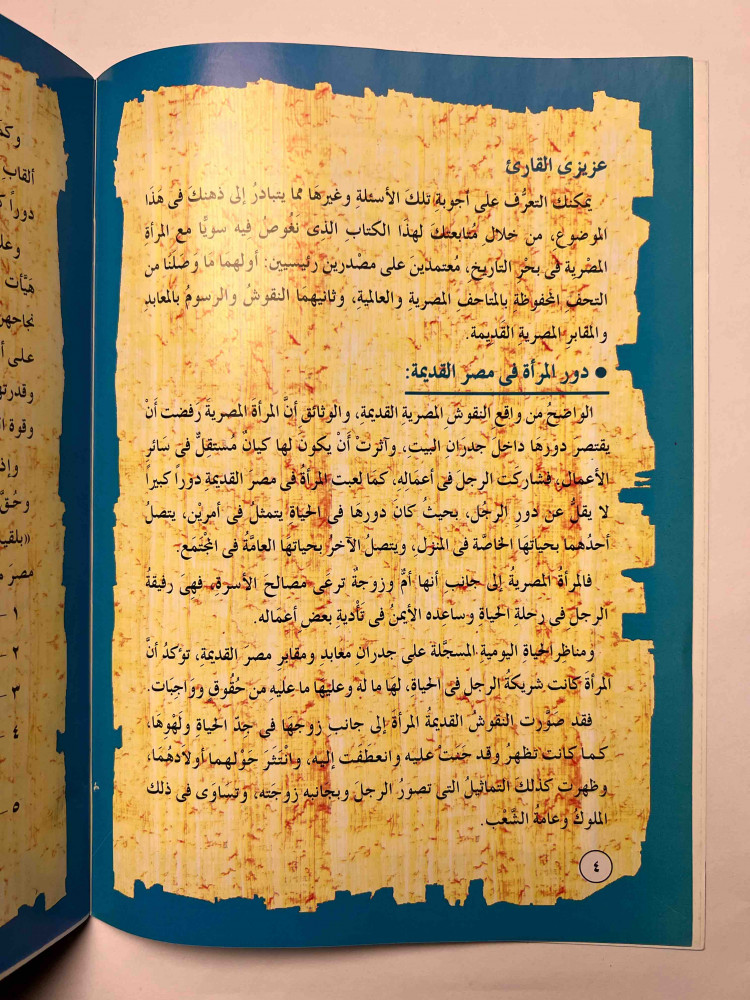 عزيزى القارئ
يمكنك التعرُّف على أجوبةِ تلكَ الأسئلةِ وغيرهَا مما يتبادرُ إلى ذهنكَ فى هَذَا
الموضوع، من خلال مُتابعتكَ لهذَا الكتابِ الذى نَغُوصُ فيه سويًّا مع المرأةِ
المصْريةِ فى بحْرِ التاريخِ، مُعتمدينَ على مصْدرينِ رئيسيينِ: أولهمَا مَا وصلنَا من
التحفِ المحفوظةِ بالمتاحفِ المصريةِ والعالميةِ، وثانيهمَا النقوشُ والرسومُ بالمعابدِ
والمقابرِ المصريةِ القَديمة.
● دور المرأة فى مصر القديمة:
الواضحُ من واقعِ النقوشِ المصريةِ القديمةِ، والوثائقِ أنَّ المرأةَ المصريةَ رفضت أنْ
يقتصرَ دورُهَا داخلَ جدرانِ البيت، وآثرتْ أَنْ يكونَ لها كيانٌ مُستقلٌّ فى سائرِ
الأعمالِ، فشاركَت الرجلَ فى أعمَاله، كمَا لعبت المرأةُ فى مصرَ القديمةِ دوراً كبيراً
لا يقلُّ عن دورِ الرجُل، بحيثُ كانَ دورهَا فى الحياةِ يتمثلُ فى أمريْنِ، يتصلُ
أحدُهما بحياتهَا الخاصَّة فى المنزل، ويتصلُ الآخر بحياتهَا العامَّة فى المجْتمَع.
فالمرأةُ المصريةُ إلى جانب أنها أمٌّ وزوجةٌ ترعَى مصَالحَ الأسرةِ، فهىَ رفيقةُ
الرجل فى رحلةِ الحياةِ وساعده الأيمنُ فى تَأْدية بعض أعمَاله.
ومناظر الحياةِ اليوميةِ المسجَّلة على جدرانِ معَابد ومقابرِ مصرَ القديمة، تؤكدُ أنَّ
المرأةَ كانت شريكةُ الرجل فى الحياة، لهَا ما له وعليهَا ما عليهِ من حُقُوقٍ ووَاجبَات.
فقد صَوَّرت النقوشُ القديمةُ المرأةَ إلى جانب زوجهَا فى جدِّ الحياةِ ولهْوِهَا،
كمـا كانت تظهرُ وقد حَنَت عليه وانعطفَت إليه، وانْتَثَرَ حَوْلهما أولادهُمَا،
وظهرت كذلكَ التماثيلُ التى تصورُ الرجلَ وبجانبه زوجته، وتسَاوَى فى ذلك
الملوكُ وعامةُ الشَّعْب.
٤
وكمَ
ألقابِ
دوراً كـ
هَيْأت
نجاحهنَ
على أ
وقدرته
وقوة ا
وإذ
وحُقَّ
«بلقي
مصرَ م
١ –
٢ –
٣ –
٤ –
٥ –